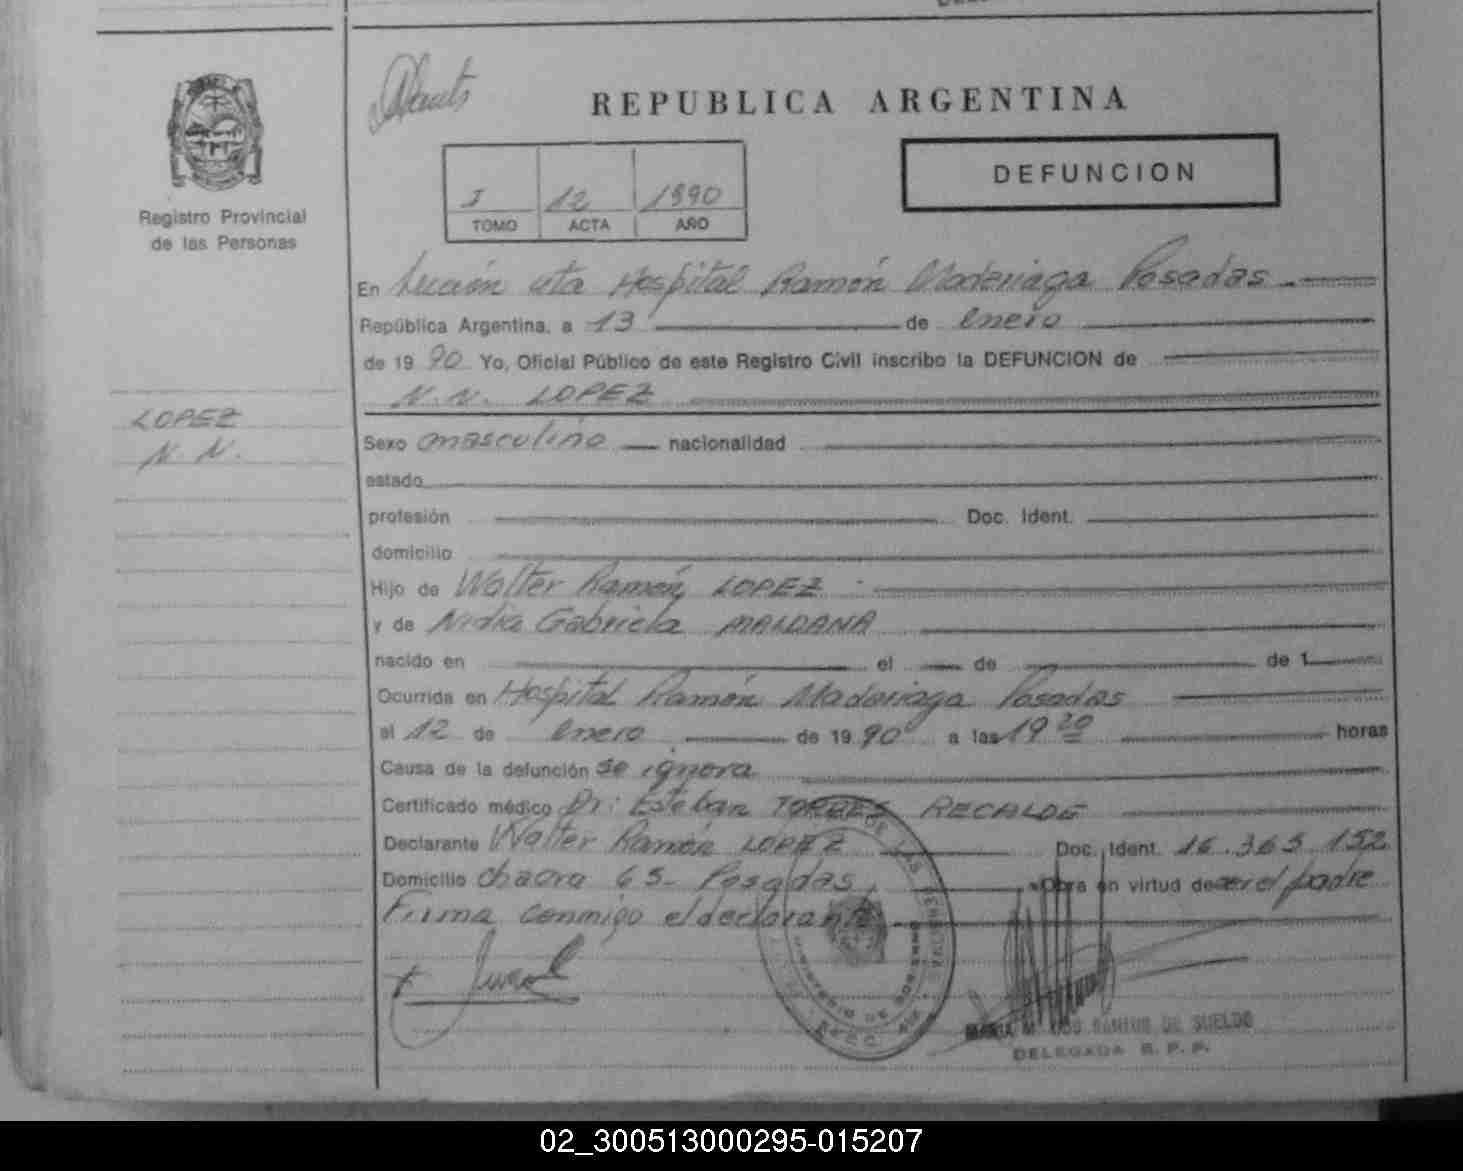 REPUBLICA ARGENTINA
I 12 1990
TOMO ACTA AÑO
DEFUNCION
Registro Provincial
de las Personas
En Sección Hospital Ramón Madariaga Posadas
República Argentina, a 13 de enero
de 19 90 Yo, Oficial Público de este Registro Civil inscribo la DEFUNCION de
N. N. LOPEZ
LOPEZ
N. N.
Sexo masculino nacionalidad
estado
profesión Doc. Ident.
domicilio
Hijo de Walter Ramón LOPEZ
y de Nidia Gabriela MALDANA
nacido en el de de 1
Ocurrida en Hospital Ramón Madariaga Posadas
el 12 de enero de 19 90 a las 19 20 horas
Causa de la defunción se ignora
Certificado médico Dr: Esteban TORRES RECALDE
Declarante Walter Ramón LOPEZ Doc. Ident. 16.363.152
Domicilio chacra 63 - Posadas Obra en virtud de ser el padre
Firma conmigo el declarante
MARIA M. DOS SANTOS DE SUELDO
DELEGADA R. P. P.
02_300513000295-015207